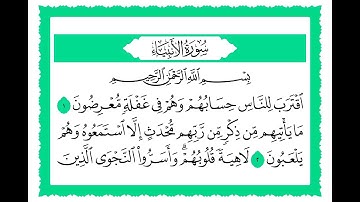 سُورَةُ الأَنْبِيَاءِ
بِسْمِ اللَّهِ الرَّحْمَٰنِ الرَّحِيمِ
ٱقْتَرَبَ لِلنَّاسِ حِسَابُهُمْ وَهُمْ فِى غَفْلَةٍ مُّعْرِضُونَ ١
مَا يَأْتِيهِم مِّن ذِكْرٍ مِّن رَّبِّهِم مُّحْدَثٍ إِلَّا ٱسْتَمَعُوهُ وَهُمْ
يَلْعَبُونَ ٢ لَاهِيَةً قُلُوبُهُمْ ۗ وَأَسَرُّوا۟ ٱلنَّجْوَى ٱلَّذِينَ